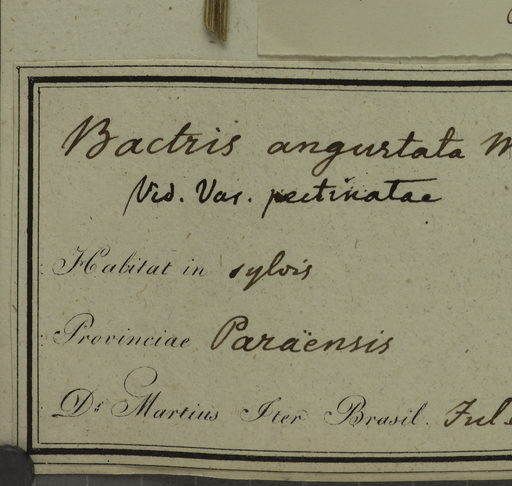 Bactris angustata M
Vid. Var. pectinatae
Habitat in sylvis
Provinciae Paraënsis
Dr Martius Iter Brasil. Jul